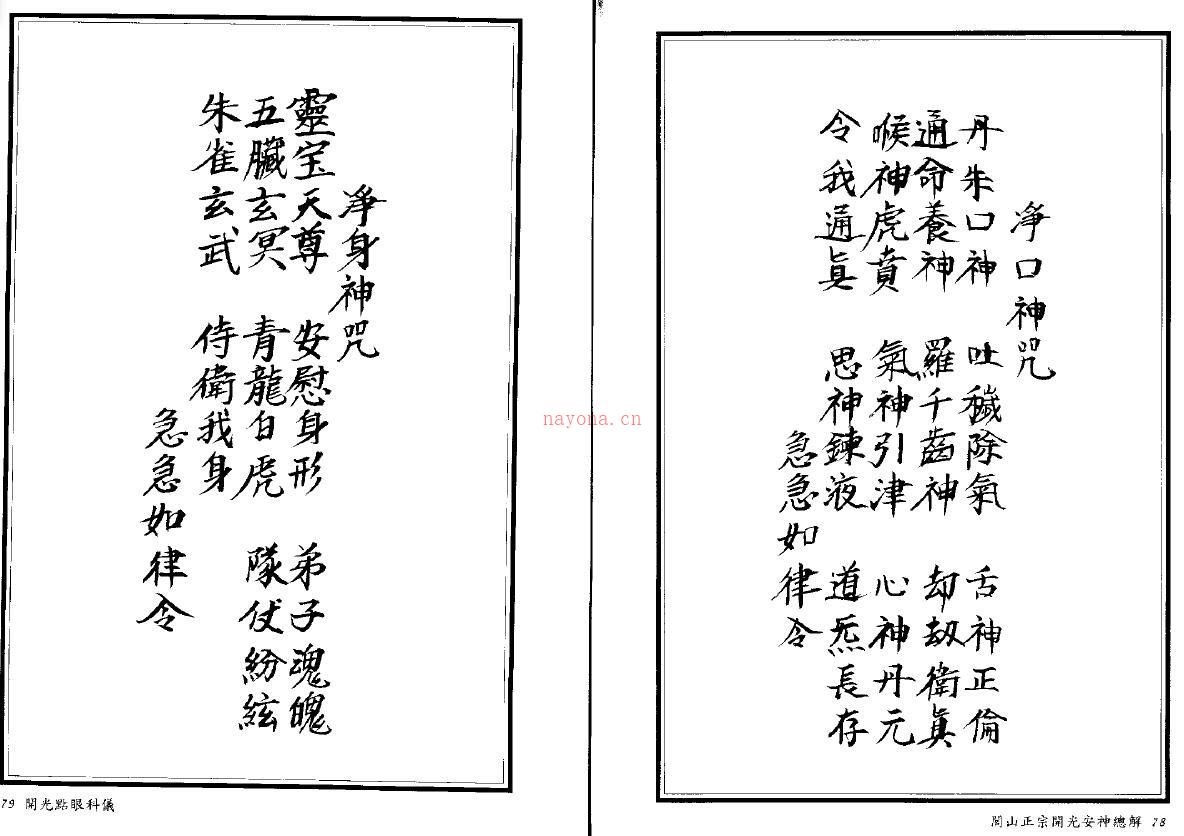 淨口神咒
丹朱口神 吐穢除氣 舌神正倫
通命養神 羅千齒神 却劫衛眞
喉神虎賁 氣神引津 心神丹元
令我通眞 思神鍊液 道炁長存
急急如律令
閭山正宗開光安神總解 78
淨身神咒
靈宝天尊 安慰身形 弟子魂魄
五臟玄冥 青龍白虎 隊仗紛絃
朱雀玄武 侍衛我身
急急如律令
79 開光點眼科儀
nayona.cn